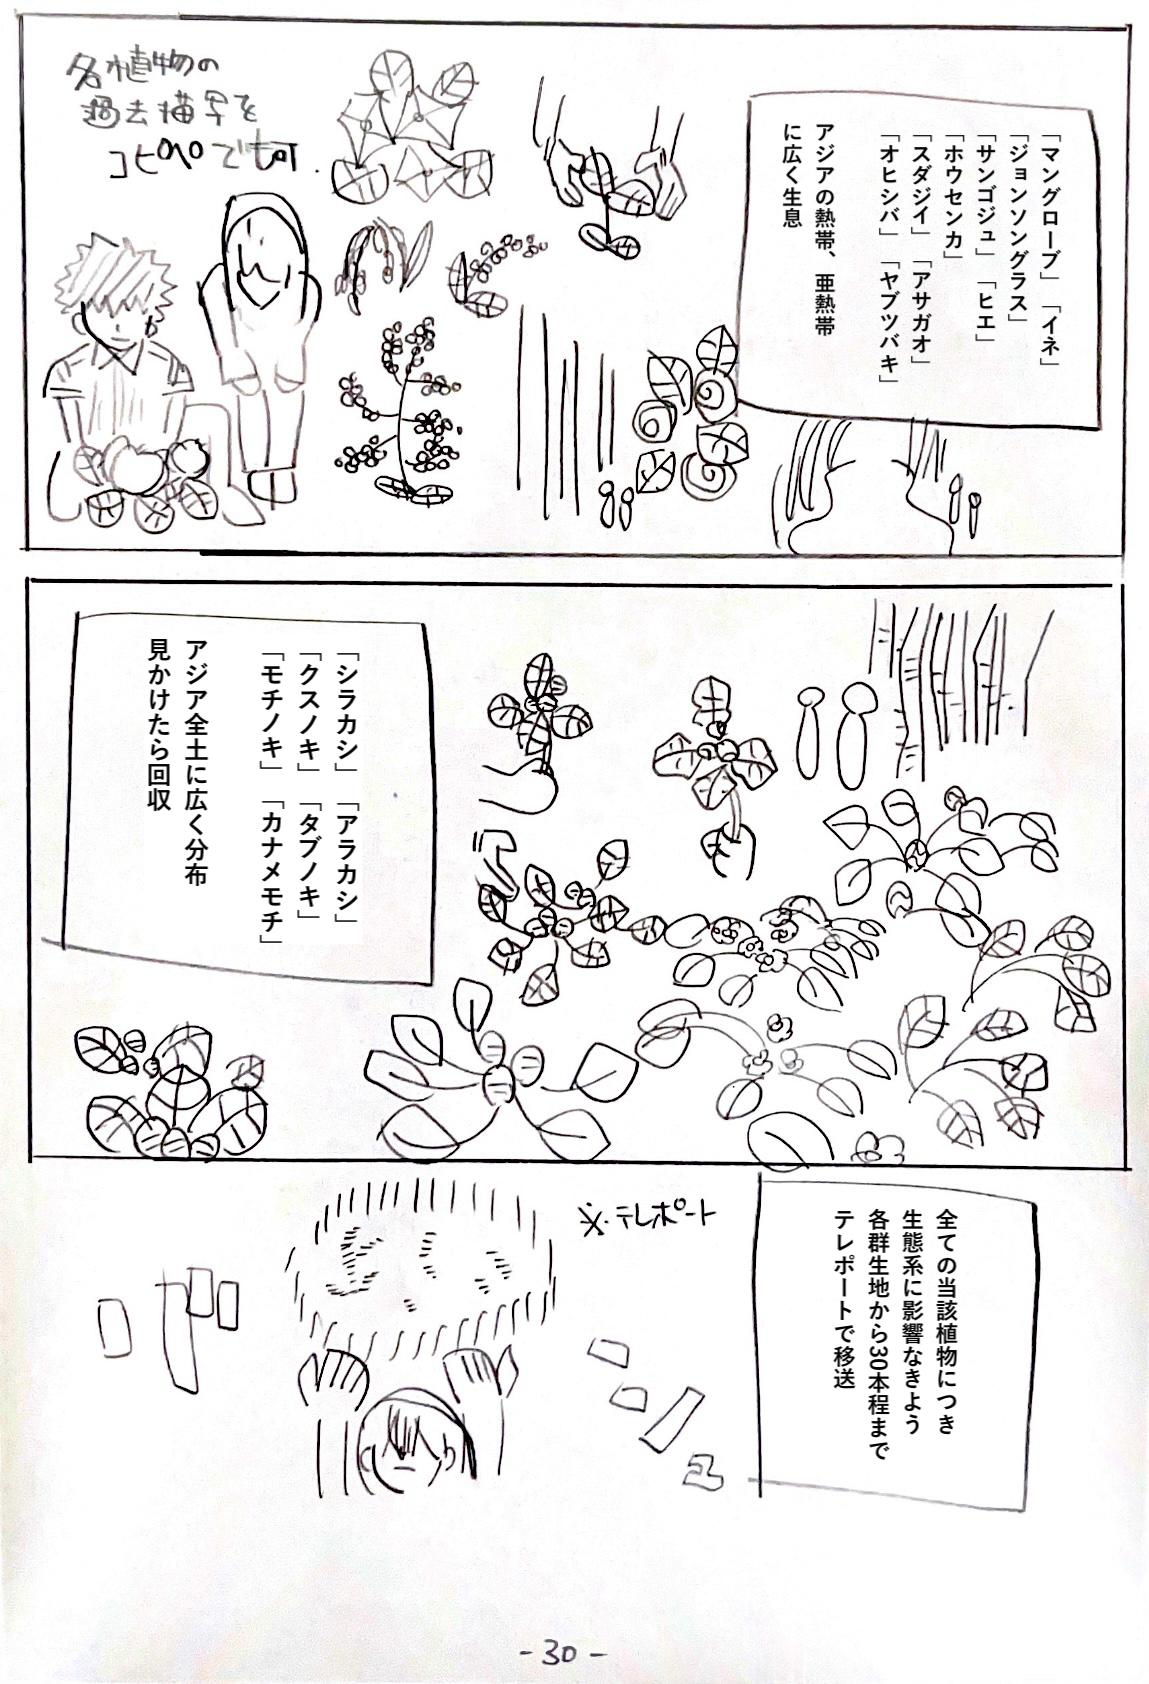 各植物の
過去描写を
コピペでも可.
「マングローブ」「イネ」
「ジョンソングラス」
「サンゴジュ」「ヒエ」
「ホウセンカ」
「スダジイ」「アサガオ」
「オヒシバ」「ヤブツバキ」
アジアの熱帯、亜熱帯
に広く生息
「シラカシ」「アラカシ」
「クスノキ」「タブノキ」
「モチノキ」「カナメモチ」
アジア全土に広く分布
見かけたら回収
※.テレポート
全ての当該植物につき
生態系に影響なきよう
各群生地から30本程まで
テレポートで移送
-30-